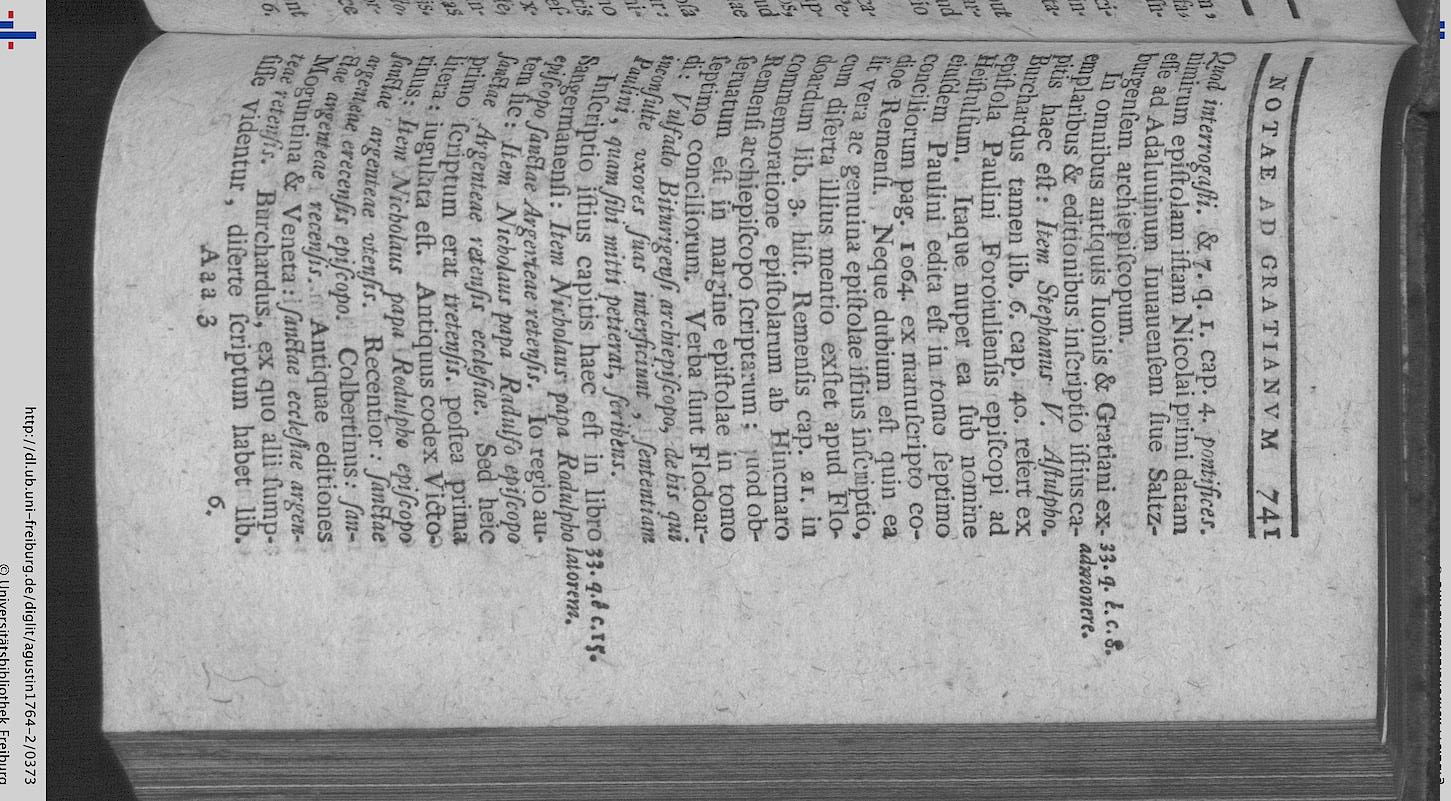 NOTAE AD GRATIANVM 741
Quod interrogaſti. & 7. q. 1. cap. 4. pontifices.
nimirum epiſtolam iſtam Nicolai primi datam
eſſe ad Adaluuinum Iuuauenſem ſiue Saltz-
burgenſem archiepiſcopum.
In omnibus antiquis Iuonis & Gratiani ex-
33. q. 2. c. 8.
emplaribus & editionibus inſcriptio iſtius ca-
admonere.
pitis haec eſt: Item Stephanus V. Aſtulpho.
Burchardus tamen lib. 6. cap. 40. refert ex
epiſtola Paulini Foroiulienſis epiſcopi ad
Heiſtulfum. Itaque nuper ea ſub nomine
eiuſdem Paulini edita eſt in tomo ſeptimo
conciliorum pag. 1064. ex manuſcripto co-
dice Remenſi. Neque dubium eſt quin ea
ſit vera ac genuina epiſtolae iſtius inſcriptio,
cum diſerta illius mentio exſtet apud Flo-
doardum lib. 3. hiſt. Remenſis cap. 21. in
commemoratione epiſtolarum ab Hincmaro
Remenſi archiepiſcopo ſcriptarum; quod ob-
ſeruatum eſt in margine epiſtolae in tomo
ſeptimo conciliorum. Verba ſunt Flodoar-
di: Vulfado Biturigenſi archiepiſcopo, de his qui
inconſulte vxores ſuas interficiunt, ſententiam
Paulini, quam ſibi mitti petierat, ſcribens.
Inſcriptio iſtius capitis haec eſt in libro
33. q. 2 c. 15.
Sangermanenſi: Item Nicholaus papa Rodulpho
latorem.
epiſcopo ſanctae Argenteae retenſis. Io regio au-
tem ſic: Item Nicholaus papa Radulfo epiſcopo
ſanctae Argenteae retenſis eccleſiae. Sed heic
primo ſcriptum erat tretenſis. poſtea prima
litera, iugulata eſt. Antiquus codex Victo-
rinus: Item Nicholaus papa Roudulpho epiſcopo
ſanctae argenteae vtenſis. Recentior: ſanctae
argenteae erecenſis epiſcopo. Colbertinus: ſan-
ctae argenteae recenſis. Antiquae editiones
Moguntina & Veneta: ſanctae eccleſiae argen-
teae retenſis. Burchardus, ex quo alii ſump-
ſiſſe videntur, diſerte ſcriptum habet lib.
Aaa 3
6.
http://dl.ub.uni-freiburg.de/diglit/agustin1764-2/0373
© Universitätsbibliothek Freiburg